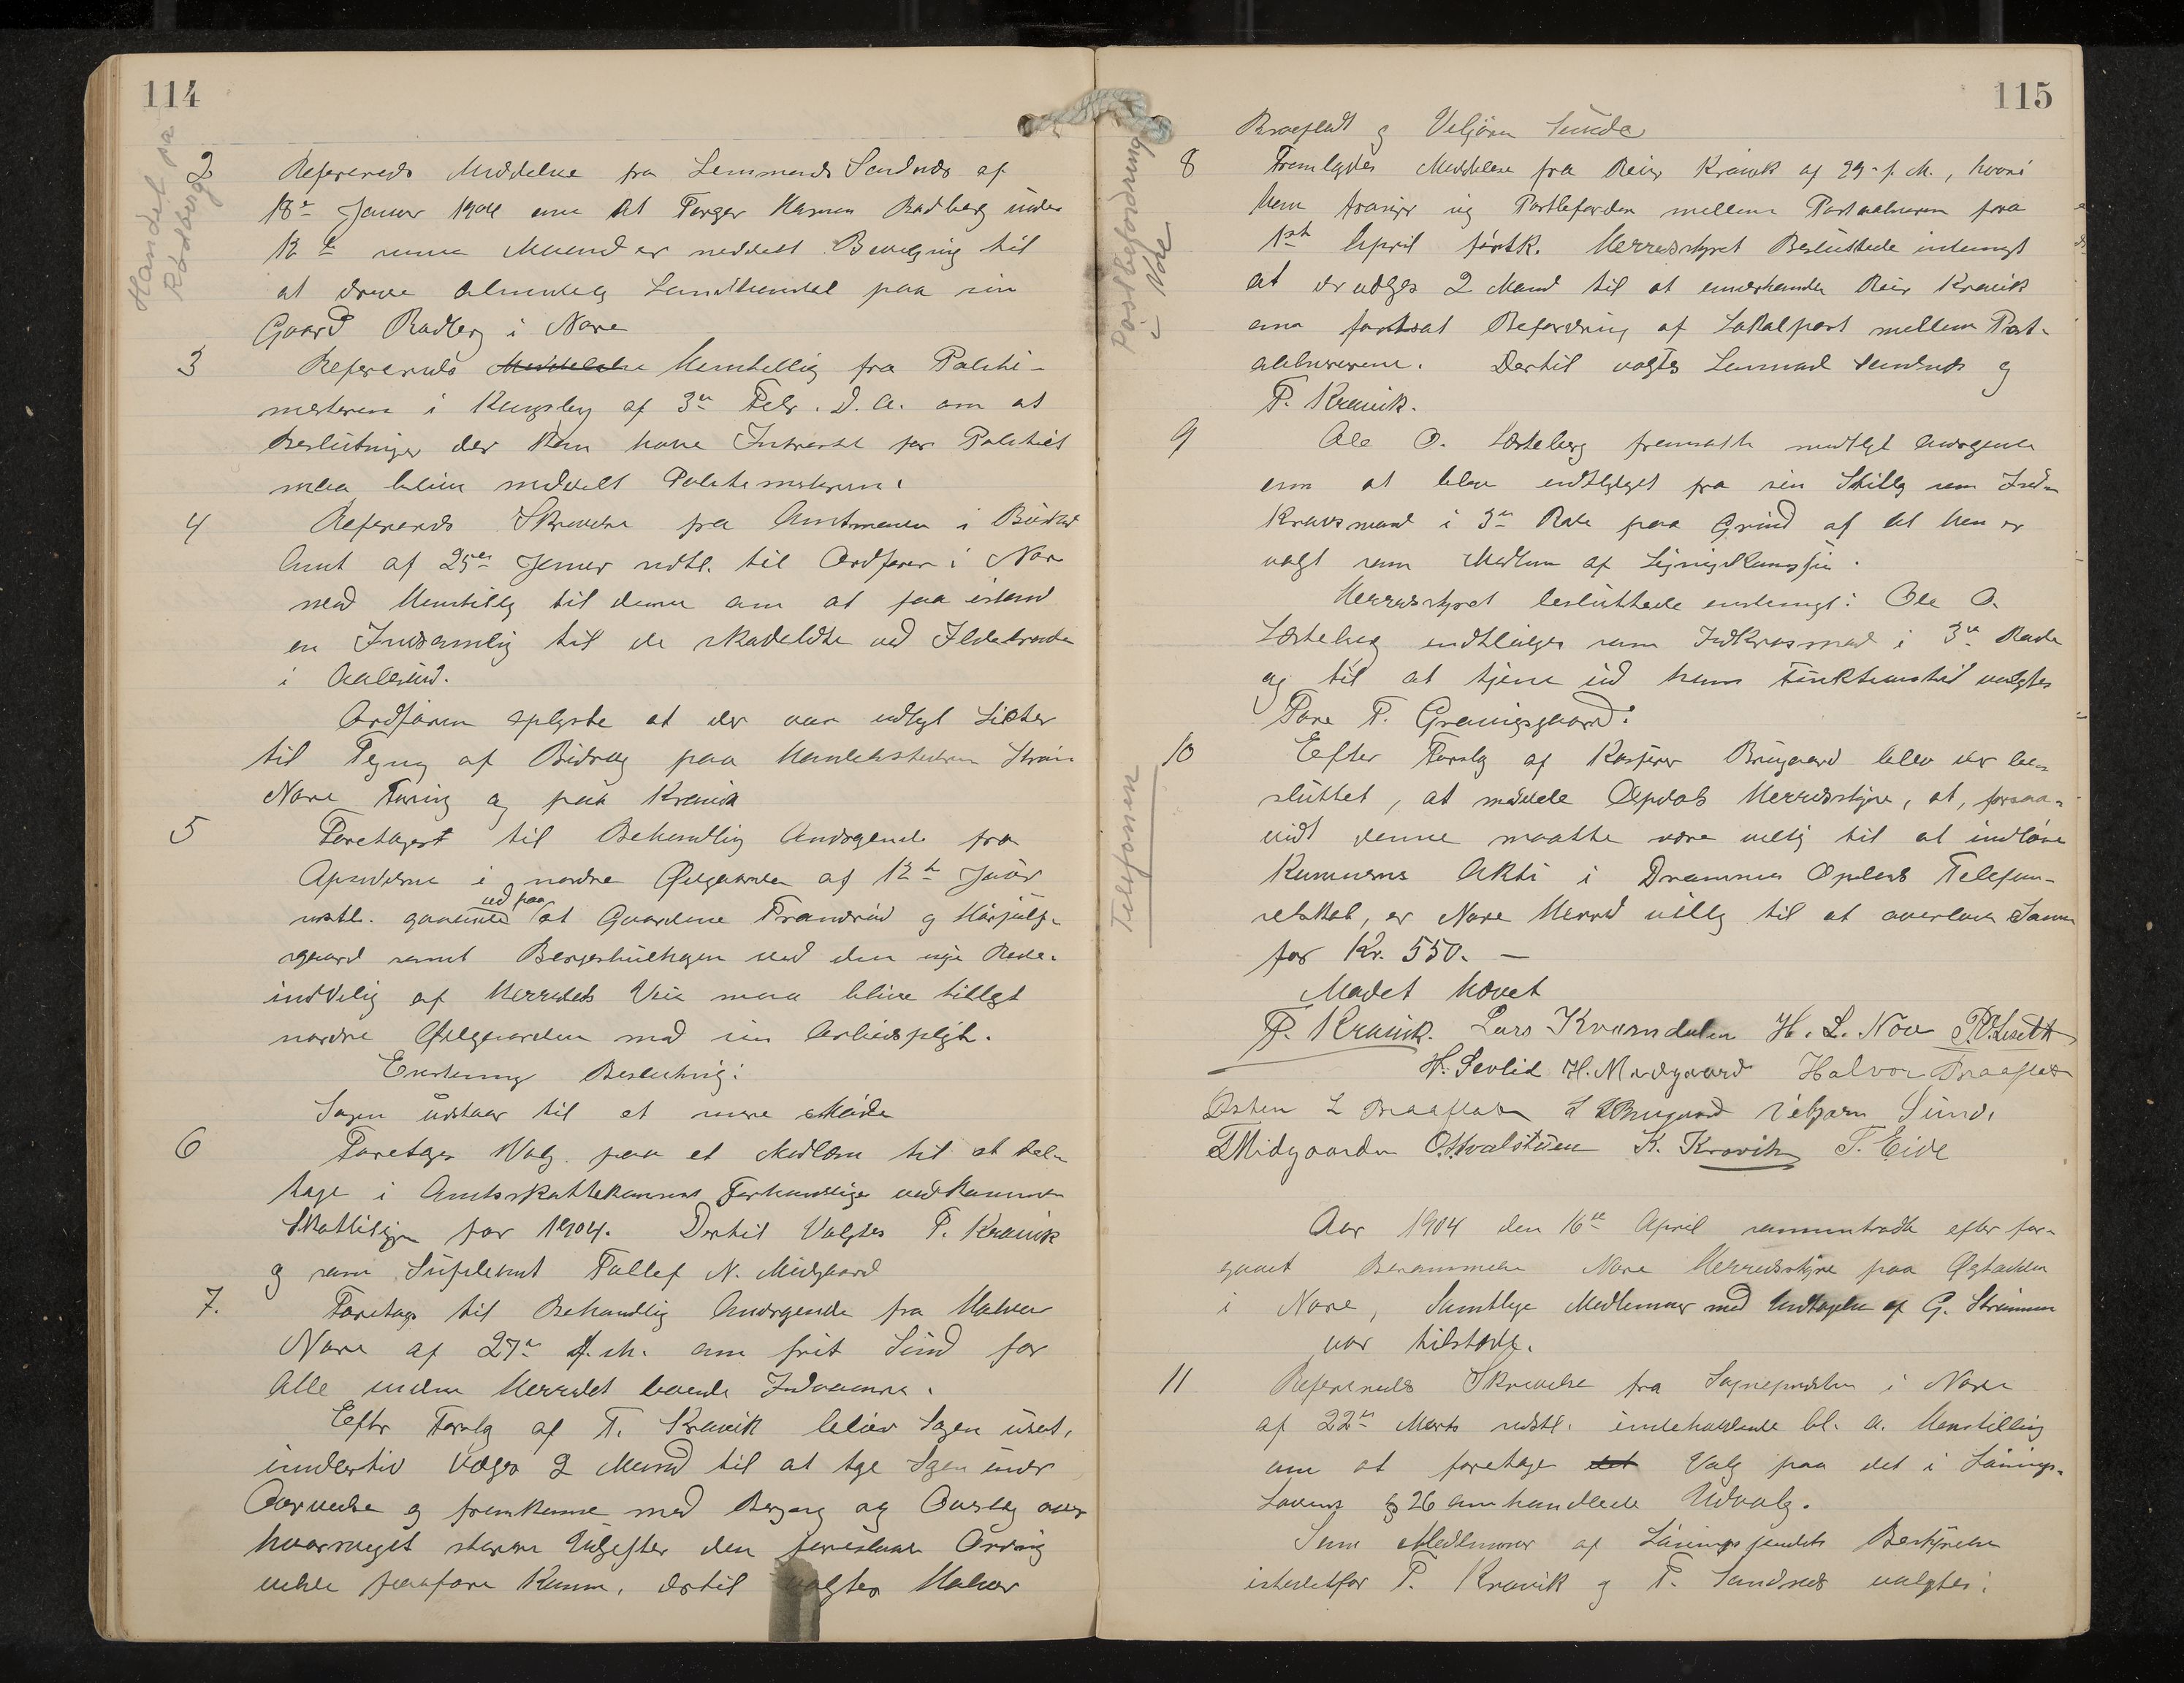 114
Handel på
Rødberg
2 Refereredes Meddelelse fra Lensmand Sandnæs af
18de Januar 1904 om at Torger Hansen Rødberg under
12te samme Maaned er meddelt Bevilgning til
at drive almindelig Landhandel paa sin
Gaard Rødberg i Nore
3 Refereredes Meddelelse Henstilling fra Politi-
mesteren i Kongsberg af 3die Febr. d. A. om at
Beslutninger der kan have Interesse for Politiet
maa blive meddelt Politimesteren.
4 Refereredes Skrivelse fra Amtmanden i Buskerud
Amt af 25de Januar sidstl. til Ordføreren i Nore
med Henstilling til denne om at faa istand
en Indsamling til de skadelidte ved Ildebranden
i Aalesund.
Ordføreren oplyste at der var udlagt Lister
til Tegning af Bidrag paa Handelsstederne
Nore og paa Kravik
5 Foretoges til Behandling Andragende fra
Opsidderne i nordre af 12te Januar
sidstl. gaaende ud paa at Gaardene og
samt ved den nye Rode-
inddeling af Herredets Veie maa blive tillagt
nordre med sin Arbeidspligt.
Enstemmig Beslutning:
Sagen udstaar til et senere Møde
6 Foretoges Valg paa et Medlem til at del-
tage i Amtsskattekommissionens Forhandlinger vedkommende
Skatteligningen for 1904. Dertil Valgtes T. Kravik
og som Suppleant Tollef N. Midgaard
7. Foretoges til Behandling Andragende fra Halvor
Nore af 27de f. M. om frit Sund for
Alle inden Herredet boende Indvaanere.
Efter Forslag af T. Kravik blev Sagen udsat,
imidlertid vælges 2 Mænd til at tage Sagen under
Overveielse og fremkomme med Beregning og Overslag over
hvormeget større Udgifter den foreslaaede Ordning
vilde paaføre Kommunen, dertil valgtes Halvor
115
Postbefordring
i Nore
Braafladt og Vebjørn Sunde
8 Fremlagdes Meddelelse fra Reier Kravik af 29de f. M., hvori
han frasiger sig Postbefordringen mellem Postaabnerierne fra
1ste April førstk. Herredsstyret Besluttede enstemmigt
at der vælges 2 Mænd til at underhandle Reier Kravik
om fortsat Befordring af Lokalpost mellem Post-
aabnerierne. Dertil valgtes Lensmand Sandnæs og
T. Kravik.
9 Ole O. fremsatte mundtligt Andragende
om at blive entlediget fra sin Stilling som Ind-
kravsmand i 3die Rode paa Grund af at han er
valgt som Medlem af Ligningskommissionen.
Herredsstyret besluttede enstemmigt: Ole O.
entlediges som Indkravsmand i 3die Rode
og til at tjene ud hans Funktionstid valgtes
Tore T.
Telefonen
10 Efter Forslag af Kasserer Brugaard blev der be-
sluttet, at meddele Opdals Herredsstyre, at, forsaa-
vidt denne maatte være villig til at indløse
Kommunens Aktie i Drammens Oplands Telefon-
selskab, er Nore Herred villig til at overlade Samme
for Kr. 550. —
Mødet hævet
T. Kravik. Lars Kvarndalen H. L. Nore
H. Sevlid H. Midgaard Halvor Braaflat
Østen L Braaflaten L Brugaard Vebjørn Sunde
T Midgaarden O. Hvalstuen K. Kravik T. Eide
Aar 1904 den 16de April sammentraadte efter for-
gaaet Berammelse Nore Herredsstyre paa
i Nore, Samtlige Medlemmer med Undtagelse af G. Strømmen
var tilstede.
11 Refereredes Skrivelse fra Sognepræsten i Nore
af 22de Marts sidstl. indeholdende bl. a. Henstilling
om at foretage det Valg paa det i Lønnings-
Lovens § 26 omhandlede Udvalg.
Som Medlemmer af Lønningsfondets Bestyrelse
istedetfor T. Kravik og T. Sandnæs valgtes: